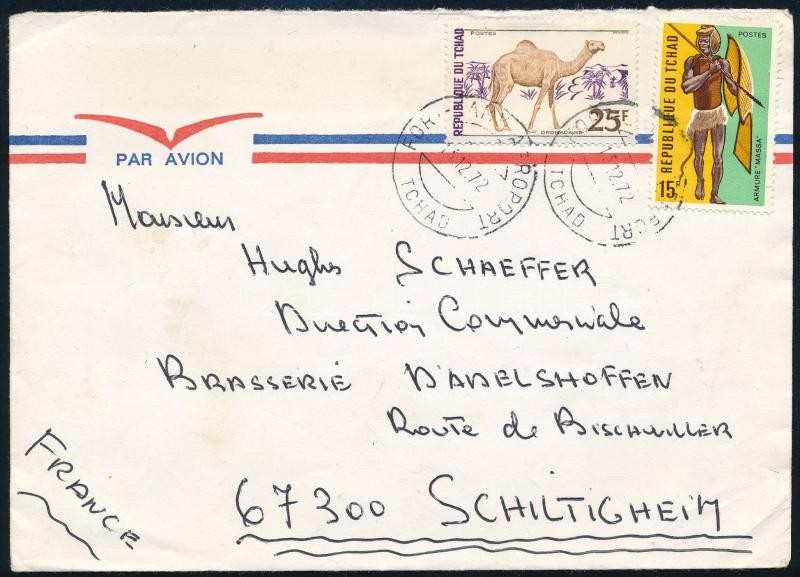 POSTES
REPUBLIQUE DU TCHAD
DROMADAIRE
25F
POSTES
REPUBLIQUE DU TCHAD
15F
ARMURE "MASSA"
AEROPORT
TCHAD
12.72
12.72
TCHAD
PAR AVION
Monsieur
Hughes SCHAEFFER
Direction Commerciale
BRASSERIE D'ADELSHOFFEN
Route de BISCHWILLER
67300 SCHILTIGHEIM
FRANCE